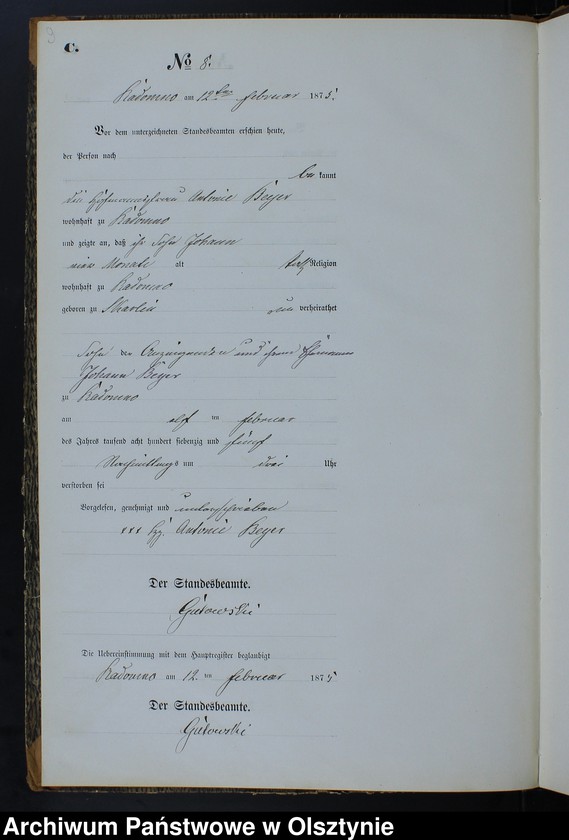 3
C.
No 8.
Radomno am 12ten Februar 1875.
Vor dem unterzeichneten Standesbeamten erschien heute,
der Person nach
be kannt
die Antonie Beyer
wohnhaft zu Radomno
und zeigte an, daß ihr Sohn Johann
vier Monate alt kath Religion
wohnhaft zu Radomno
geboren zu un verheirathet
Sohn der Anzeigenden und ihres Ehemannes
Johann Beyer
zu Radomno
am elf ten Februar
des Jahres tausend acht hundert siebenzig und fünf
Nachmittags um drei Uhr
verstorben sei
Vorgelesen, genehmigt und unterschrieben
xxx Antonie Beyer
Der Standesbeamte.
Gutowski
Die Uebereinstimmung mit dem Hauptregister beglaubigt
Radomno am 12. ten Februar 1875
Der Standesbeamte.
Gutowski
Archiwum Państwowe w Olsztynie